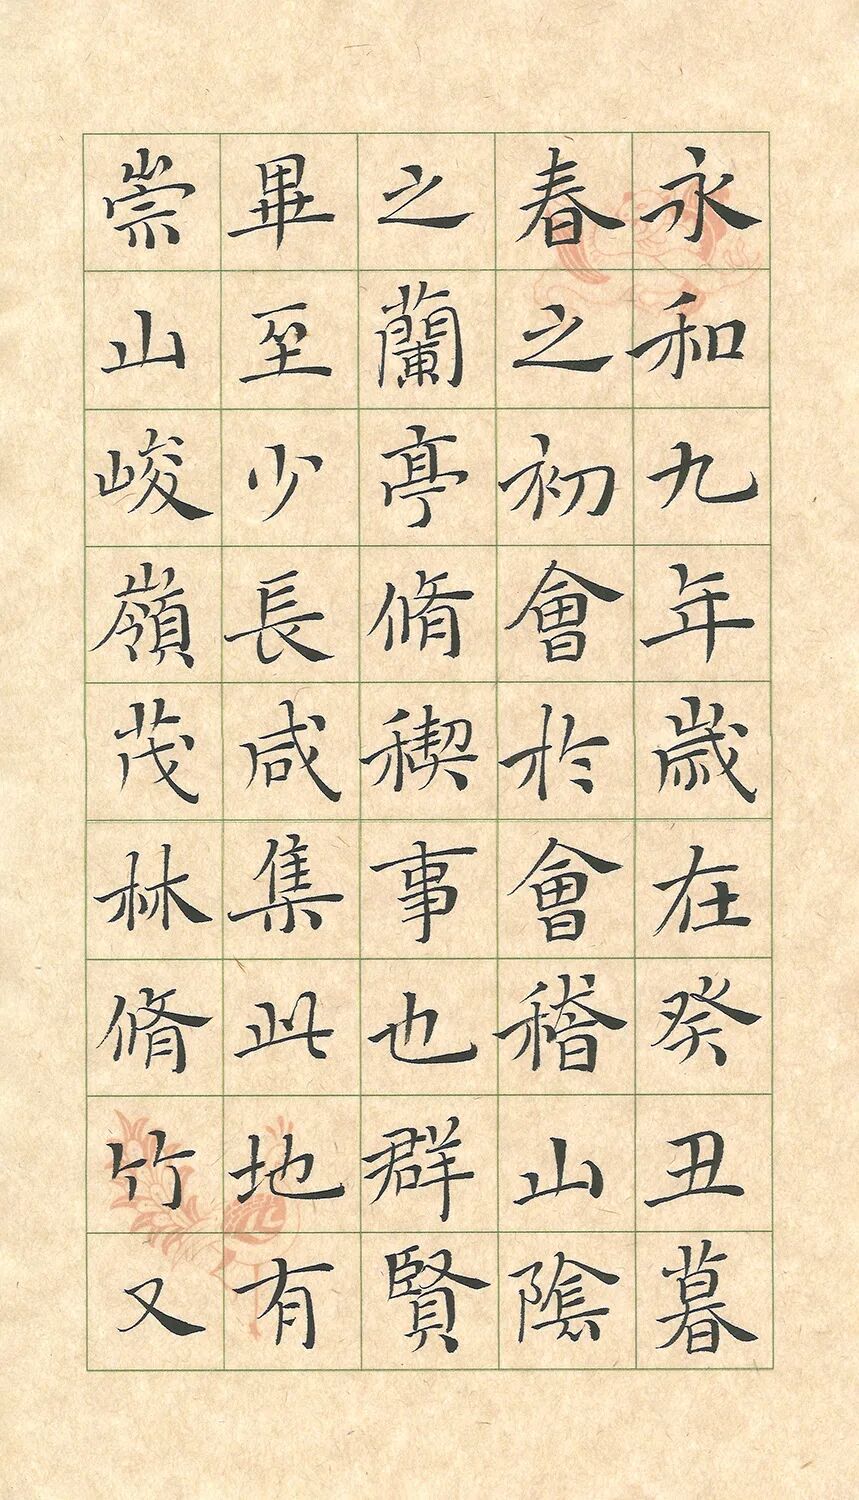 永和九年歳在癸丑暮
春之初會於會稽山陰
之蘭亭脩稧事也群賢
畢至少長咸集此地有
崇山峻嶺茂林脩竹又